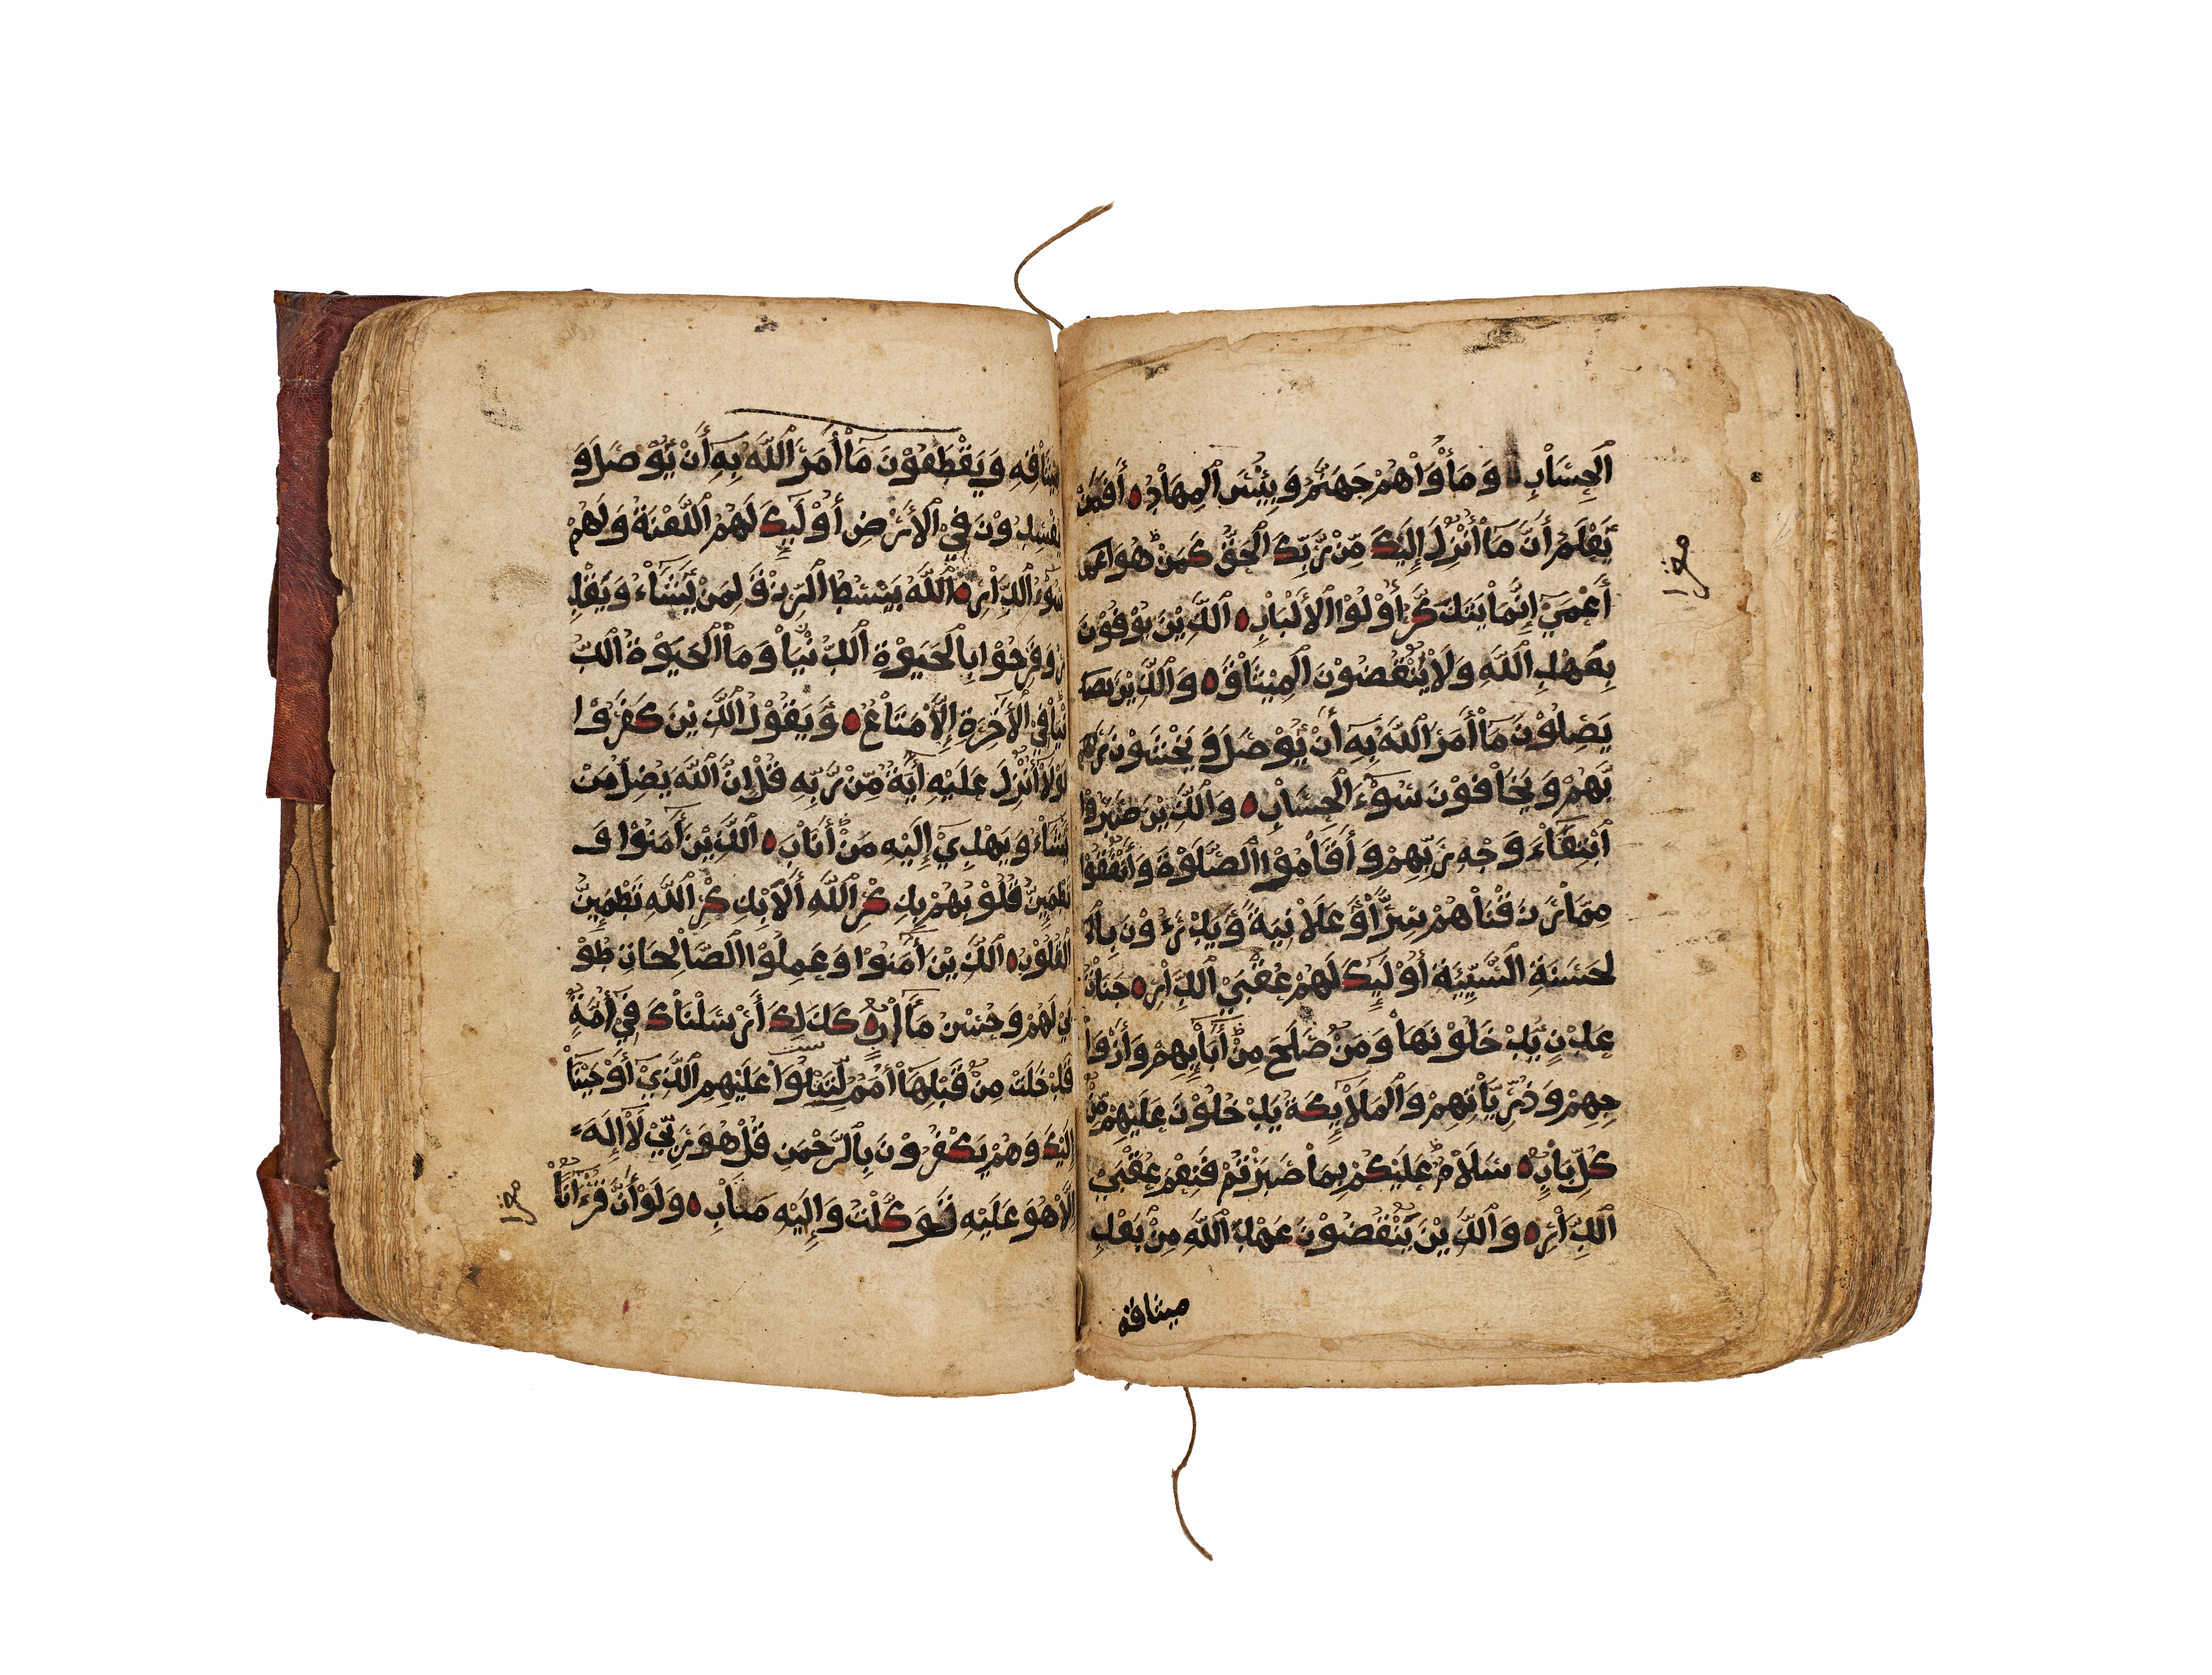 الْحِسَابِ وَمَأْوَاهُمْ جَهَنَّمُ وَبِئْسَ الْمِهَادُ أَفَمَنْ
يَعْلَمُ أَنَّمَا أُنْزِلَ إِلَيْكَ مِنْ رَّبِّكَ الْحَقُّ كَمَنْ هُوَ
أَعْمَىٰ إِنَّمَا يَتَذَكَّرُ أُوْلُوْا الْأَلْبَابِ الَّذِيْنَ يُوْفُوْنَ
بِعَهْدِ اللَّهِ وَلَا يَنْقُضُوْنَ الْمِيْثَاقَ وَالَّذِيْنَ يصـ
يَصِلُوْنَ مَا أَمَرَ اللَّهُ بِهِ أَنْ يُوْصَلَ وَيَخْشَوْنَ رَبَّهُمْ
بَّهُمْ وَيَخَافُوْنَ سُوْءَ الْحِسَابِ وَالَّذِيْنَ صَبَرُوْا
ابْتِغَاءَ وَجْهِ رَبِّهِمْ وَأَقَامُوْا الصَّلَوٰةَ وَأَنْفَقُوْا
مِمَّا رَزَقْنَاهُمْ سِرًّا وَّعَلَانِيَةً وَّيَدْرَءُوْنَ بِالْـ
لحَسَنَةِ السَّيِّئَةَ أُوْلَٰئِكَ لَهُمْ عُقْبَي الدَّارِ جَنَّاتُ
عَدْنٍ يَّدْخُلُوْنَهَا وَمَنْ صَلَحَ مِنْ أَبَائِهِمْ وَأَزْوَا
جِهِمْ وَذُرِّيَّاتِهِمْ وَالْمَلَائِكَةُ يَدْخُلُوْنَ عَلَيْهِمْ مِّنْ
كُلِّ بَابٍ سَلَامٌ عَلَيْكُمْ بِمَا صَبَرْتُمْ فَنِعْمَ عُقْبَي
الدَّارِ وَالَّذِيْنَ يَنْقُضُوْنَ عَهْدَ اللَّهِ مِنْ بَعْدِ
ميثاقه
مِيْثَاقِهِ وَيَقْطَعُوْنَ مَا أَمَرَ اللَّهُ بِهِ أَنْ يُّوْصَلَ وَ
يُفْسِدُوْنَ فِي الْأَرْضِ أُوْلَٰئِكَ لَهُمُ اللَّعْنَةُ وَلَهُمْ
سُوْءُ الدَّارِ اللَّهُ يَبْسُطُ الرِّزْقَ لِمَنْ يَّشَاءُ وَيَقْدِ
رُ وَفَرِحُوْا بِالْحَيَوٰةِ الدُّنْيَا وَمَا الْحَيَوٰةُ الدُّ
نْيَا فِي الْأَخِرَةِ إِلَّا مَتَاعٌ وَيَقُوْلُ الَّذِيْنَ كَفَرُوْا
لَوْلَا أُنْزِلَ عَلَيْهِ أَيَةٌ مِّنْ رَّبِّهِ قُلْ إِنَّ اللَّهَ يُضِلُّ مَنْ
يَّشَاءُ وَيَهْدِيْ إِلَيْهِ مَنْ أَنَابَ الَّذِيْنَ أَمَنُوْا وَ
تَطْمَئِنُّ قُلُوْبُهُمْ بِذِكْرِ اللَّهِ أَلَا بِذِكْرِ اللَّهِ تَطْمَئِنُّ
الْقُلُوْبُ الَّذِيْنَ أَمَنُوْا وَعَمِلُوْا الصَّالِحَاتِ طُوْ
بَىٰ لَهُمْ وَحُسْنُ مَأَابٍ كَذَٰلِكَ أَرْسَلْنَاكَ فِيْ أُمَّةٍ
قَدْ خَلَتْ مِنْ قَبْلِهَا أُمَمٌ لِّتَتْلُوَا عَلَيْهِمُ الَّذِيْ أَوْحَيْنَا
إِلَيْكَ وَهُمْ يَكْفُرُوْنَ بِالرَّحْمَنِ قُلْ هُوَ رَبِّيْ لَا إِلَٰهَ
إِلَّا هُوَ عَلَيْهِ تَوَكَّلْتُ وَإِلَيْهِ مَتَابِ وَلَوْ أَنَّ قُرْءَانًا